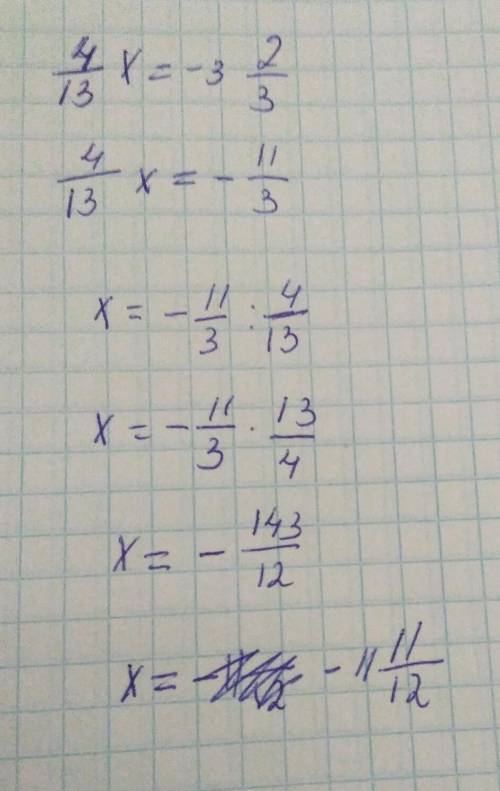 4/13 x = -3 2/3
4/13 x = - 11/3
x = - 11/3 : 4/13
x = - 11/3 · 13/4
x = - 143/12
x = - 11 11/12